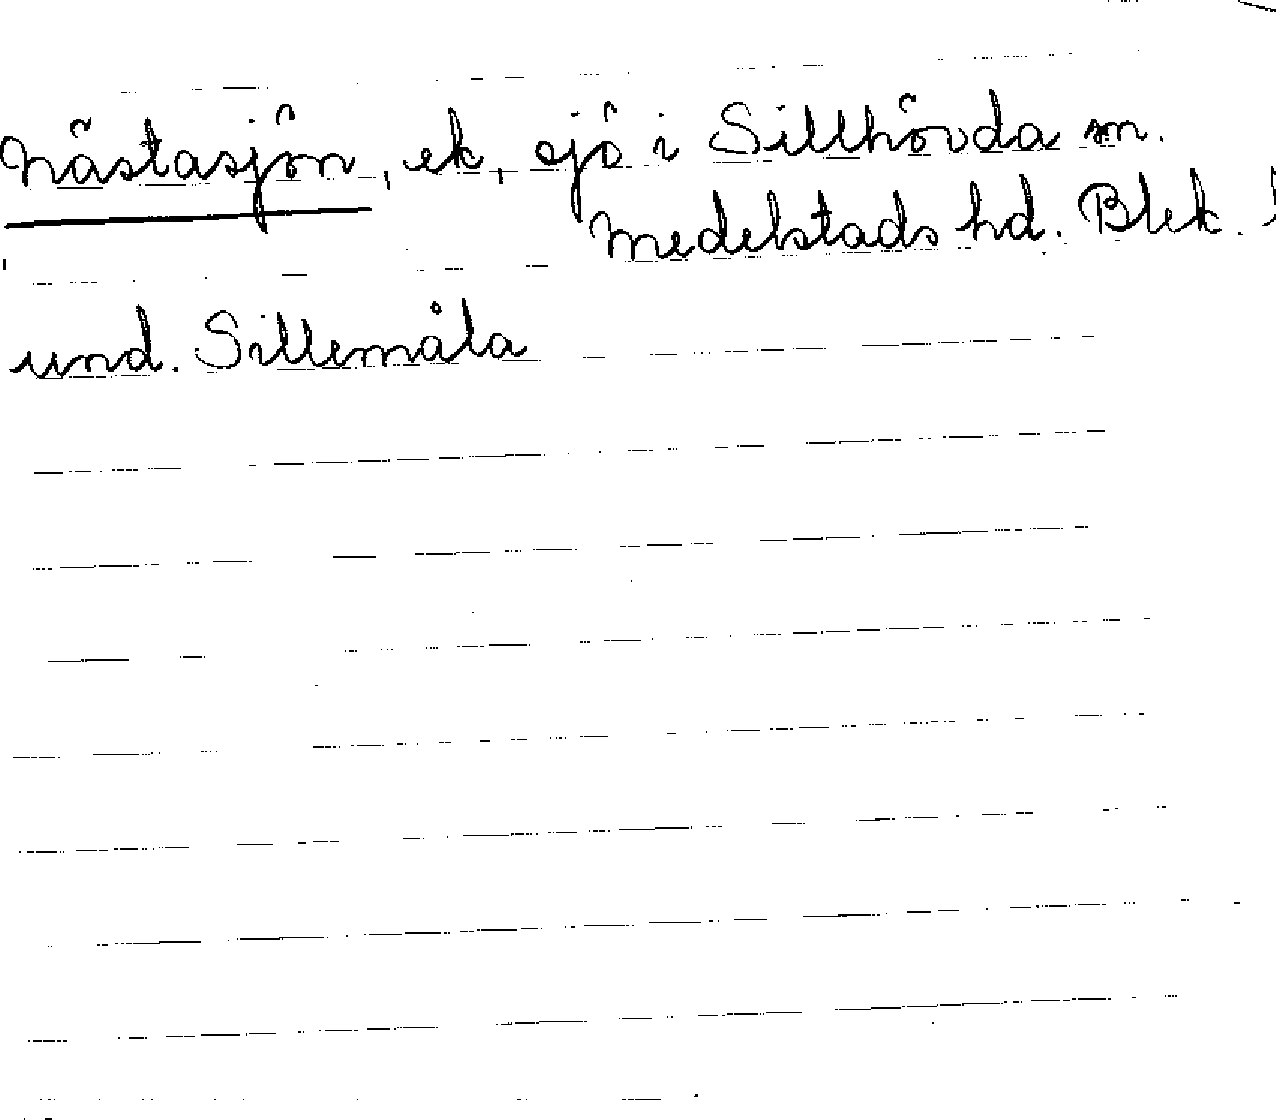 Nästasjön, ek, sjö i Sillhövda sn.
Medelstads hd. Blek.
und. Sillemåla